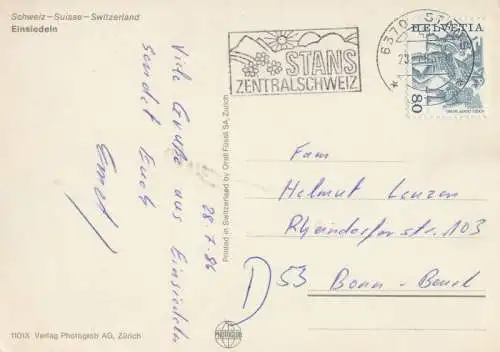 Schweiz – Suisse – Switzerland
Einsiedeln
Viele Grüße aus Einsiedeln
sendet Euch
Ernst
28.7.86
STANS
ZENTRALSCHWEIZ
6370 STANS
HELVETIA
80
Fam
Helmut Lenzen
Rheindorfer str. 103
D 53 Bonn-Beuel
Printed in Switzerland by Orell Füssli SA, Zürich
1101X Verlag Photoglob AG, Zürich
PHOTOGLOB